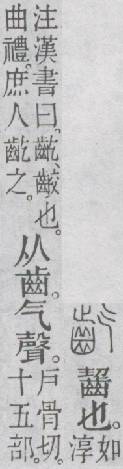 齕 齧也。如淳
注漢書曰。齕、齩也。
曲禮。庶人齕之。
从齒。气聲。
戶骨切。
十五部。